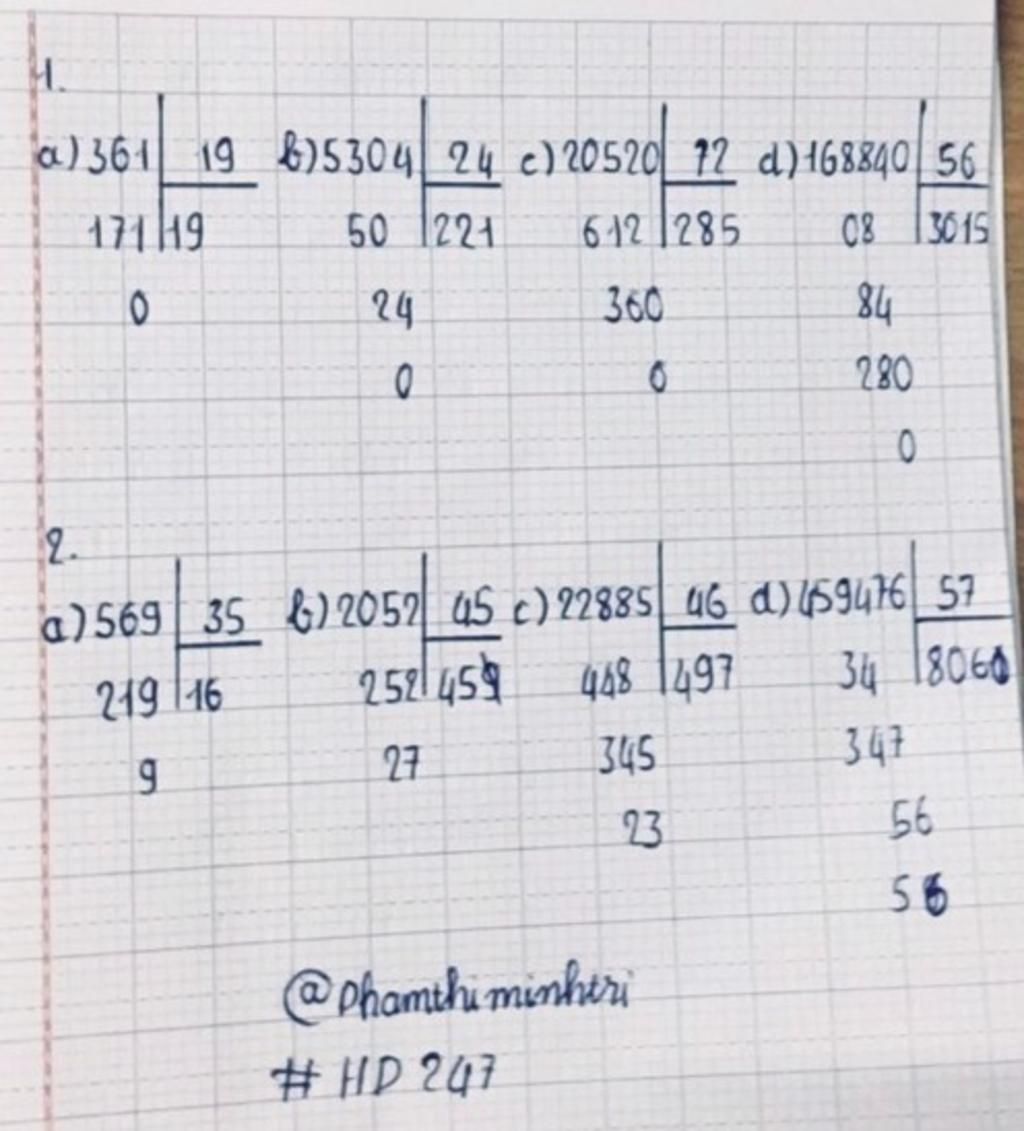 1.
a) 361 19 b) 5304 24 c) 20520 72 d) 168840 56
171 19 50 221 612 285 08 3015
0 24 360 84
0 0 280
0
2.
a) 569 35 b) 2052 45 c) 22885 46 d) 459476 57
219 16 252 448 497 34
9 27 345 347
23 56
56
@phamthiminhtri
# HD 247